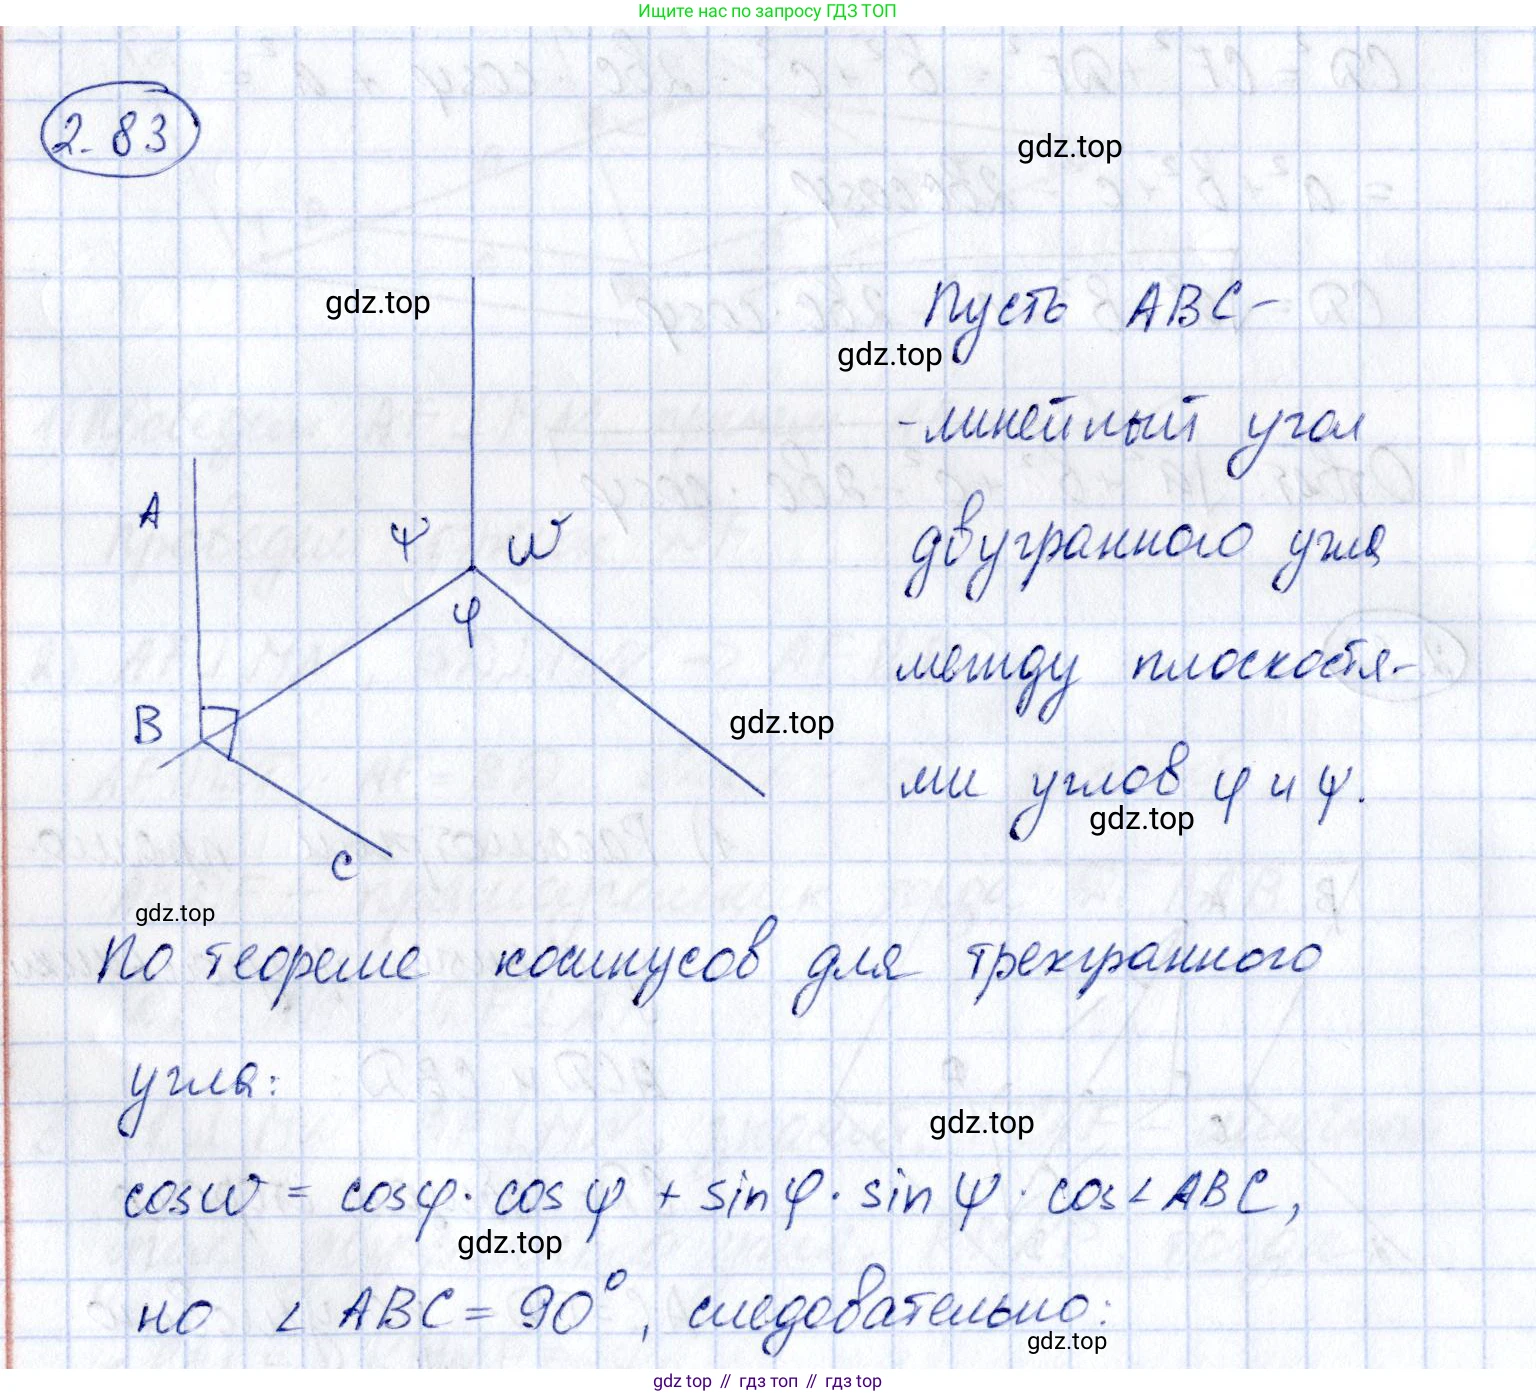 Ищите нас по запросу ГДЗ ТОП
2.83
gdz.top
gdz.top
Пусть ABC-
gdz.top
-линейный угол
A
ψ
ω
двугранного угла
φ
между плоскостя-
B
gdz.top
ми углов φ и ψ.
gdz.top
C
gdz.top
По теореме косинусов для трехгранного
угла:
gdz.top
cosω = cosφ · cosψ + sinφ · sinψ · cos∠ABC,
gdz.top
но ∠ABC = 90°, следовательно:
gdz.top
gdz топ // гдз топ // гдз top